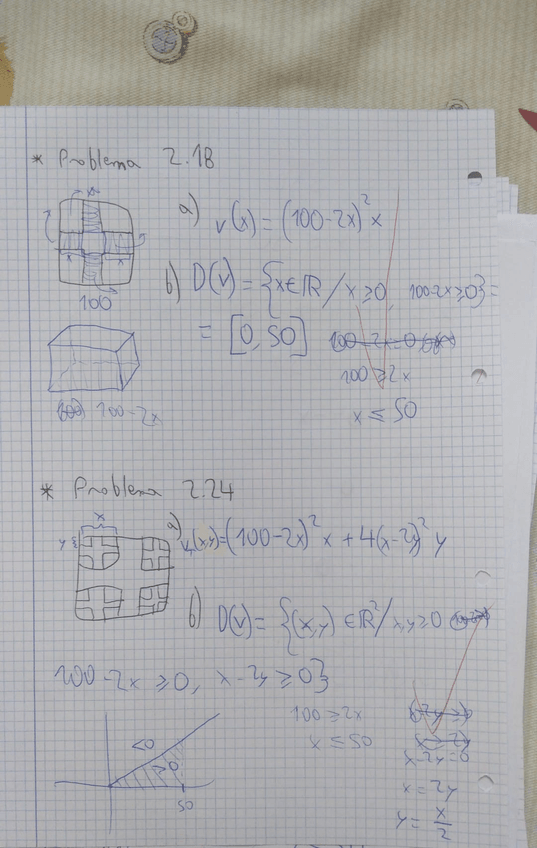 * Problema 2.18
x
a) v(x) = (100-2x)² x
x x
100
b) D(v) = {x∈ℝ / x≥0, 100-2x≥0} =
= [0,50]
100 - 2x = 0
100 ≥ 2x
x ≤ 50
100-2x
* Problema 2.24
x
y
a) V(x,y) = (100-2x)² x + 4(x-2y)² y
b) D(v) = {(x,y) ∈ℝ² / x,y≥0
100 - 2x ≥0, x-2y ≥0}
100 ≥ 2x
x ≤ 50
x-2y=0
x = 2y
y = x/2
<0
>0
50